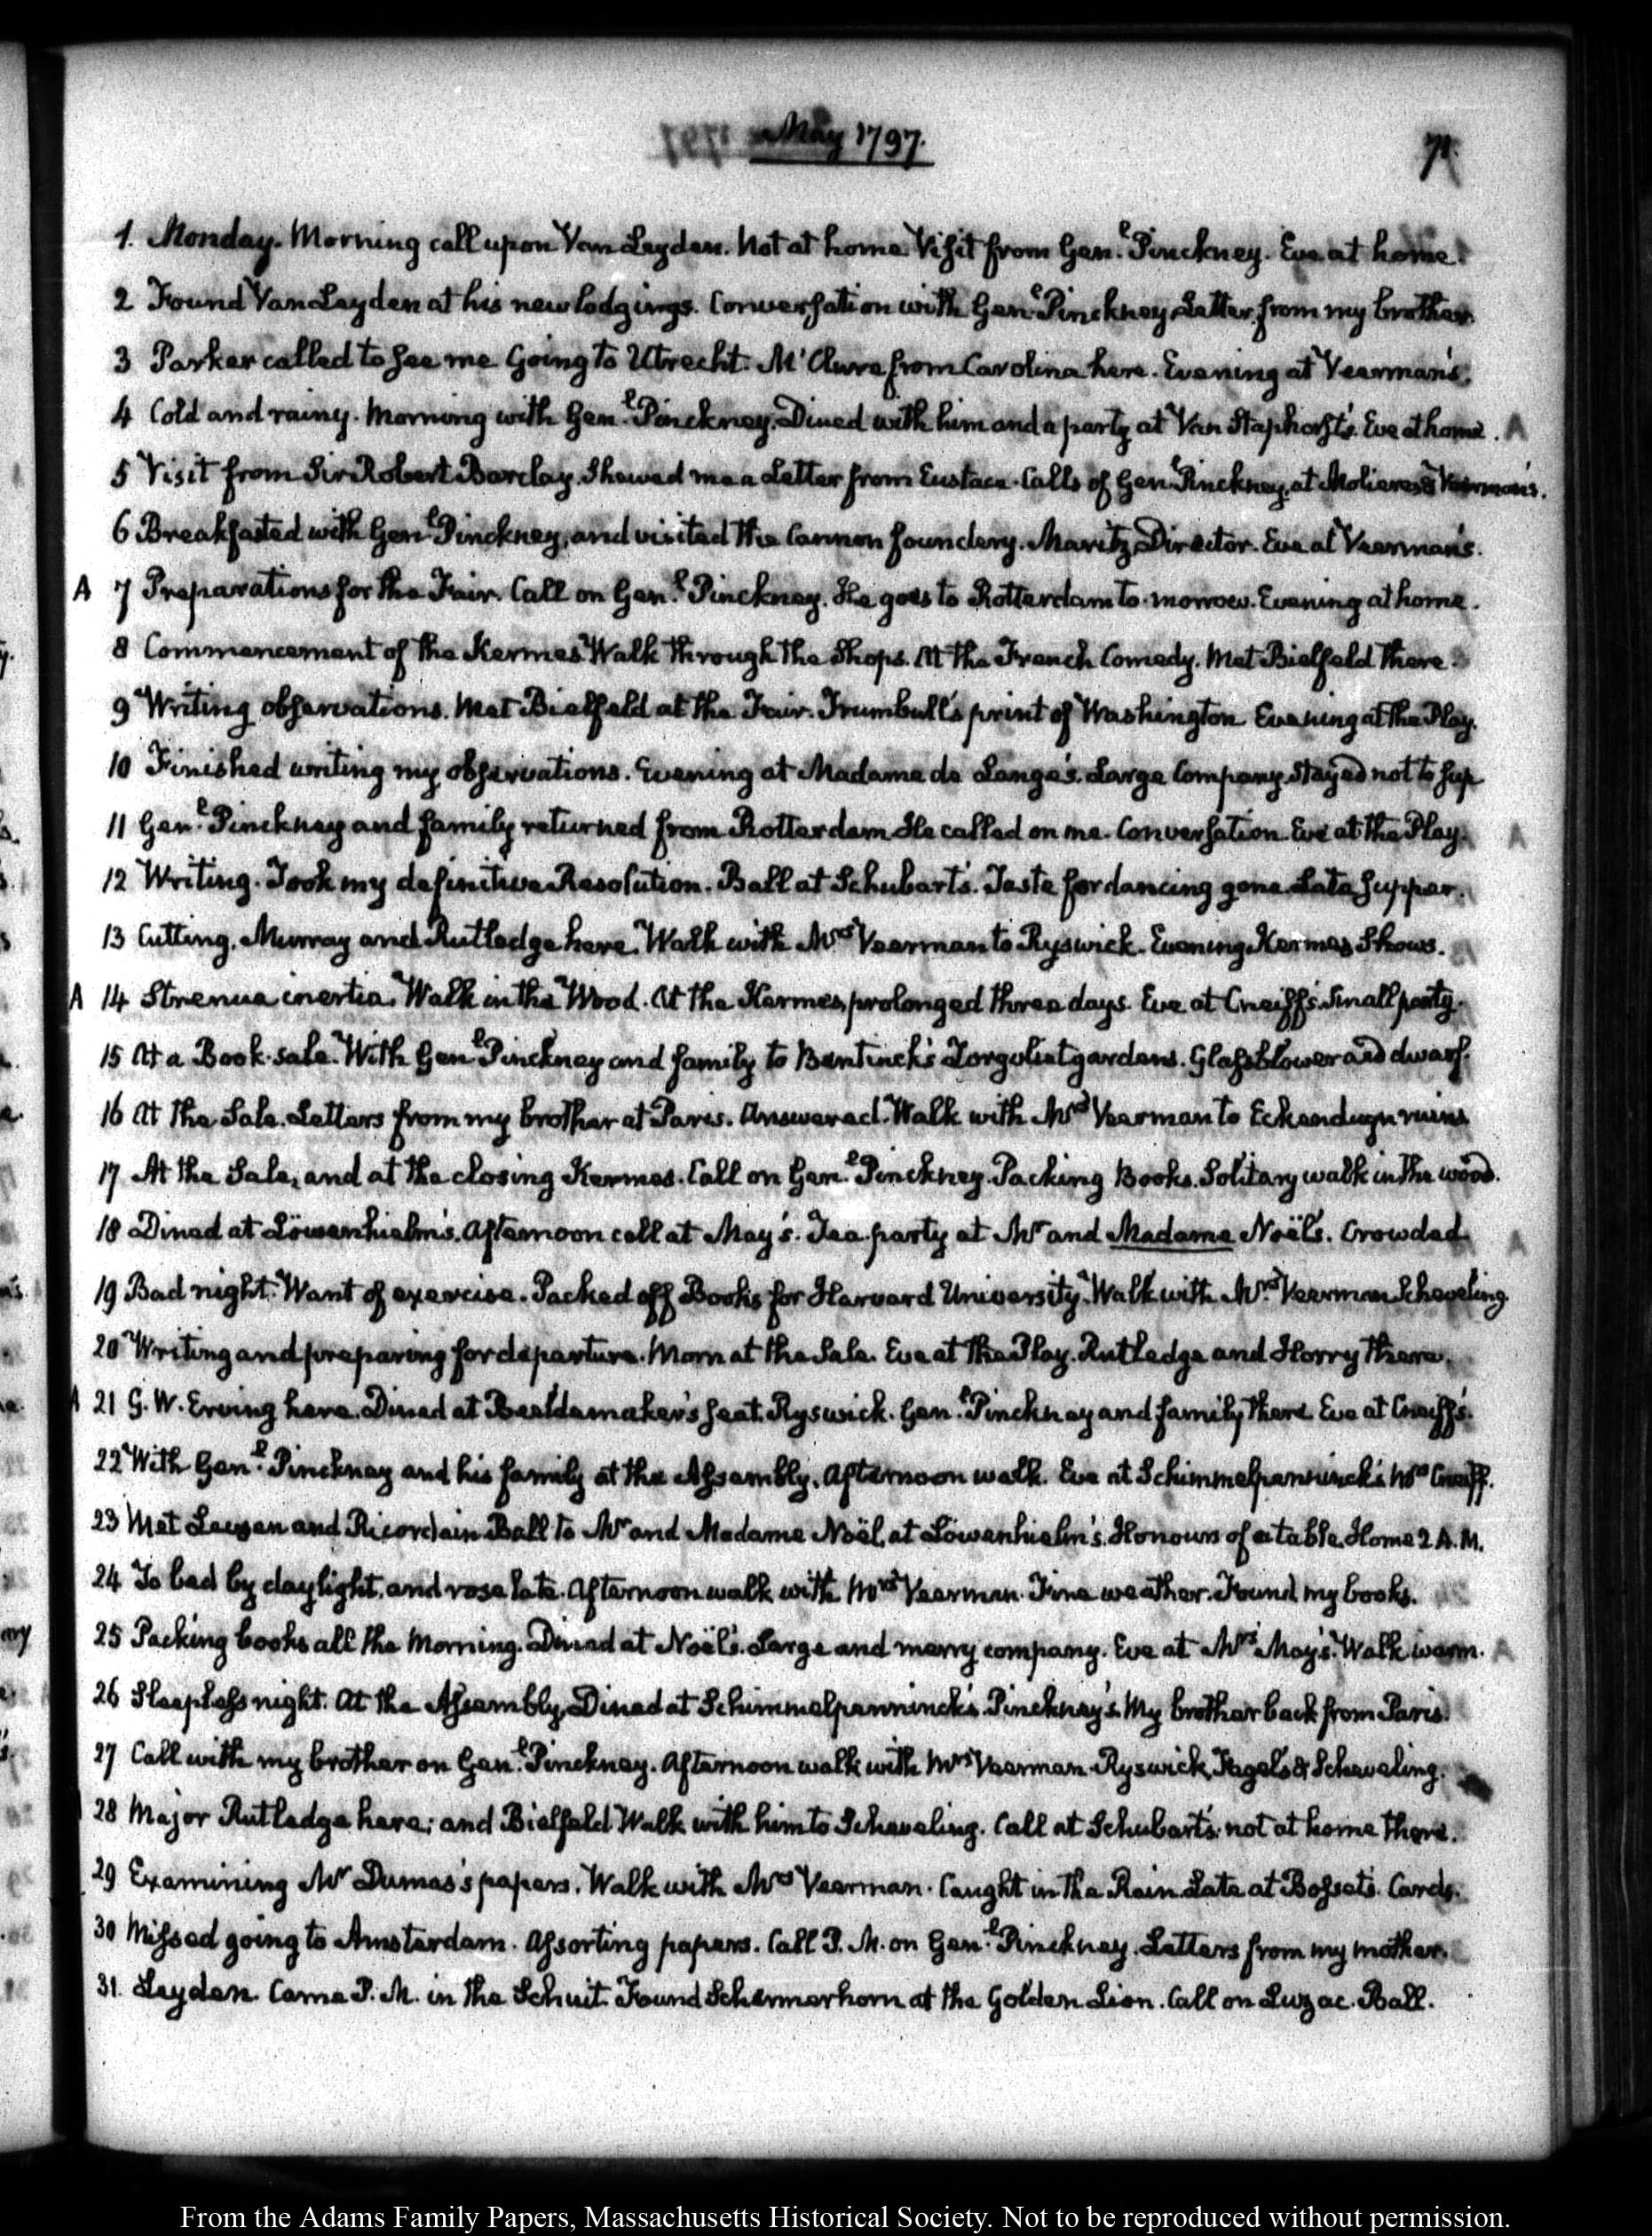 May 1797.
1. Monday. Morning call upon Van Leyden. Not at home. Visit from Genl. Pinckney. Eve at home.
2 Found Van Leyden at his new lodgings. Conversation with Genl. Pinckney. Letter from my brother.
3 Parker called to see me Going to Utrecht. McClure from Carolina here. Evening at Veerman's.
4 Cold and rainy. Morning with Genl. Pinckney. Dined with him and a party at Van Staphorst's. Eve at home. A
5 Visit from Sir Robert Barclay. Shewed me a Letter from Eustace. Calls of Genl Pinckney, at Moliere's & Veerman's.
6 Breakfasted with Genl. Pinckney, and visited the Cannon foundery. Maritz Director. Eve at Veerman's.
A 7 Preparations for the Fair. Call on Genl. Pinckney. He goes to Rotterdam to-morrow. Evening at home.
8 Commencement of the Kermes. Walk through the Shops. At the French Comedy. Met Bielfeld there.
9 Writing observations. Met Bielfeld at the Fair. Trumbull's print of Washington Evening at the Play.
10 Finished writing my observations. Evening at Madame de Lange's. Large Company. Stayed not to sup
11 Genl. Pinckney and family returned from Rotterdam He called on me. Conversation. Eve at the Play. A
12 Writing. Took my definitive Resolution. Ball at Schubart's. Taste for dancing gone. Late supper.
13 Cutting, Murray and Rutledge here. Walk with Mrs Veerman to Ryswick. Evening Kermes Shows.
A 14 Strenua inertia. Walk in the Wood. At the Kermes, prolonged three days. Eve at Cneiff's. Small party.
15 At a Book-sale. With Genl. Pinckney and family to Bentinck's Zorgvliet gardens. Glassblower and dwarf.
16 At the Sale. Letters from my brother at Paris. Answered. Walk with Mrs Veerman to Eckenduyn ruins
17 At the Sale, and at the closing Kermes. Call on Genl. Pinckney. Packing Books. Solitary walk in the wood.
18 Dined at Löwenhielm's. Afternoon call at May's. Tea party at Mr and Madame Noël's. Crowded. A
19 Bad night. Want of exercise. Packed off Books for Harvard University. Walk with Mrs. Veerman Scheveling.
20 Writing and preparing for departure. Morn at the Sale. Eve at the Play. Rutledge and Horry there.
A 21 G. W. Erving here. Dined at Beeldemaker's seat. Ryswick. Genl. Pinckney and family there. Eve at Cneiff's.
22 With Genl. Pinckney and his family at the Assembly. Afternoon walk. Eve at Schimmelpenninck's Mrs Cneiff.
23 Met and Ball to Mr and Madame Noël, at Löwenhielm's. Honours of a table. Home 2 A.M.
24 To bed by daylight, and rose late. Afternoon walk with Mrs Veerman. Fine weather. Found my books.
25 Packing books all the Morning. Dined at Noël's. Large and merry company. Eve at Mrs May's. Walk warm. A
26 Sleepless night. At the Assembly, Dined at Schimmelpenninck's. Pinckney's. My brother back from Paris.
27 Call with my brother on Genl. Pinckney. Afternoon walk with Mrs Veerman. Ryswick, Fagel's & Scheveling.
28 Major Rutledge here; and Bielfeld Walk with him to Scheveling. Call at Schubart's: not at home there.
29 Examining Mr Dumas's papers. Walk with Mrs Veerman. Caught in the Rain. Late at Bosset's. Cards.
30 Missed going to Amsterdam. Assorting papers. Call P.M. on Genl. Pinckney. Letters from my mother.
31. Leyden. Came P.M. in the Schuit. Found Schermerhorn at the Golden Lion. Call on Luzac. Ball.
From the Adams Family Papers, Massachusetts Historical Society. Not to be reproduced without permission.